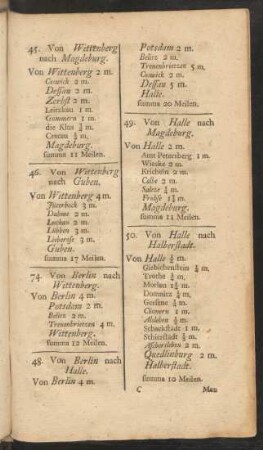 45. Von Wittenberg
nach Magdeburg.
Von Wittenberg 2 m.
Coswick 2 m.
Dessau 2 m.
Zerbst 2 m.
Leitzkau 1 m.
Gommern 1 m.
die Klus ¾ m.
Cracau ½ m.
Magdeburg.
summa 11 Meilen.
46. Von Wittenberg
nach Guben.
Von Wittenberg 4 m.
Jüterbock 3 m.
Dahme 2 m.
Luckau 2 m.
Lübben 3 m.
Lieberose 3 m.
Guben.
summa 17 Meilen.
74. Von Berlin nach
Wittenberg.
Von Berlin 4 m.
Potsdam 2 m.
Belitz 2 m.
Treuenbrietzen 4 m.
Wittenberg.
summa 12 Meilen.
48. Von Berlin nach
Halle.
Von Berlin 4 m.
Potsdam 2 m.
Belitz 2 m.
Treuenbrietzen 5 m.
Coswick 2 m.
Dessau 5 m.
Halle.
summa 20 Meilen.
49. Von Halle nach
Magdeburg.
Von Halle 2 m.
Amt Petersberg 1 m.
2 m.
2 m.
Calbe 2 m.
Saltze ½ m.
Frohse 1½ m.
Magdeburg.
summa 11 Meilen.
50. Von Halle nach
Halberstadt.
Von Halle ½ m.
Giebichenstein ½ m.
Trotha ½ m.
Morlau 1½ m.
Domnitz ½ m.
Gerbste ½ m.
1 m.
Alsleben ½ m.
Schackstädt 1 m.
Schierstädt ½ m.
Aschersleben 2 m.
Quedlinburg 2 m.
Halberstadt.
summa 10 Meilen.
C